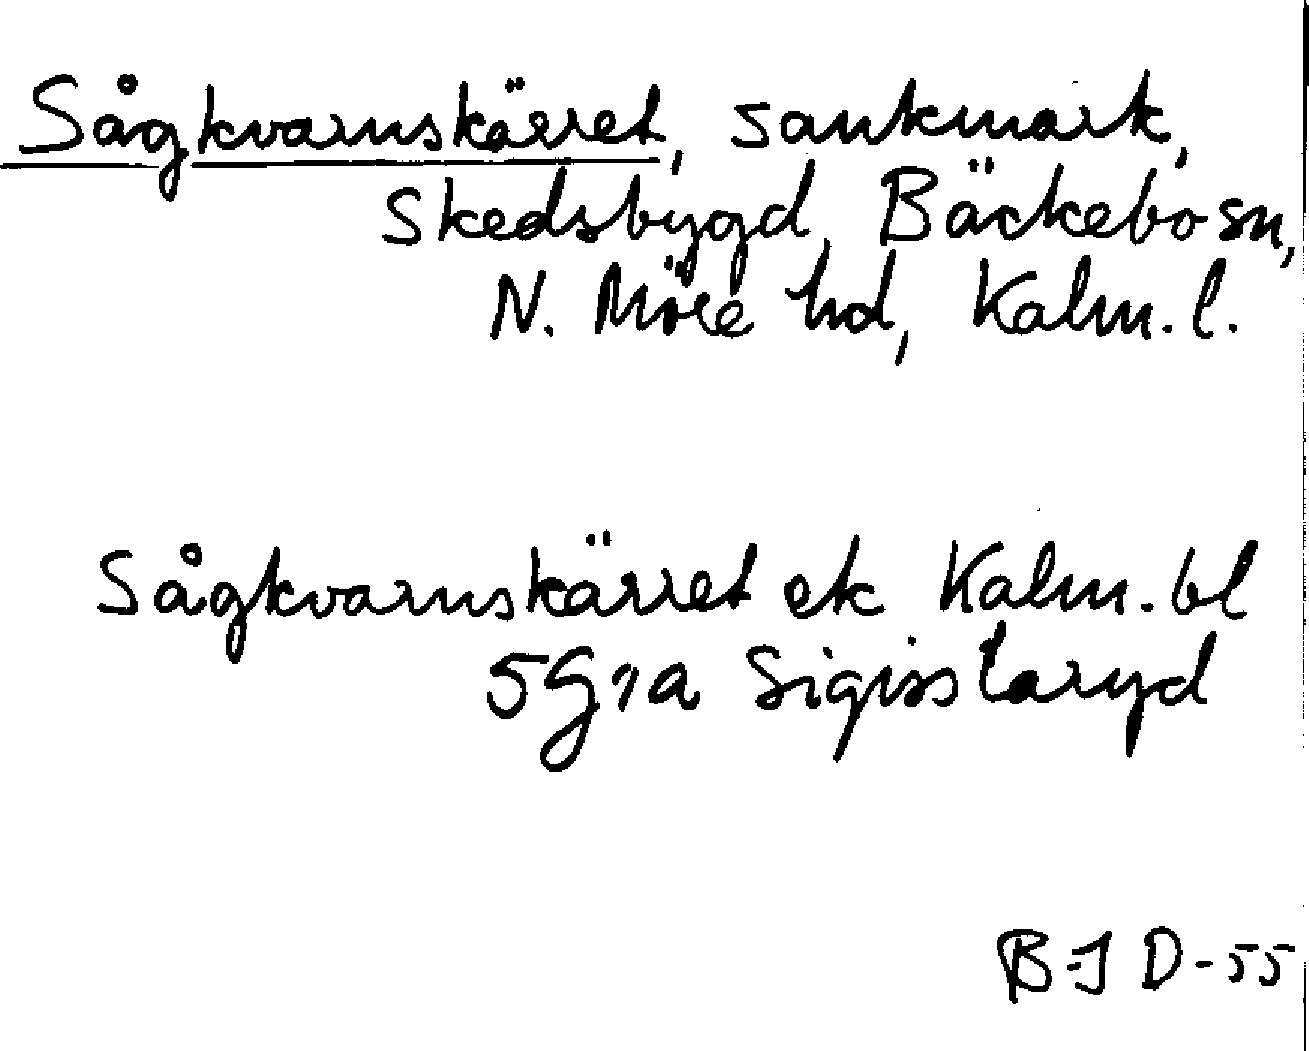 Sågkvarnskärret, sankmark,
Skedsbygd, Bäckebo sn,
N. Möre hd, Kalm. l.
Sågkvarnskärret ek Kalm. bl
5G1a Sigisstaryd
B-J D-55